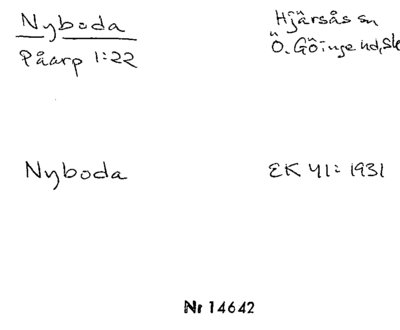 Nyboda
Påarp 1:22
Hjärsås sn
Ö. Göinge hd, Sk
Nyboda
EK 41: 1931
Nr 14642